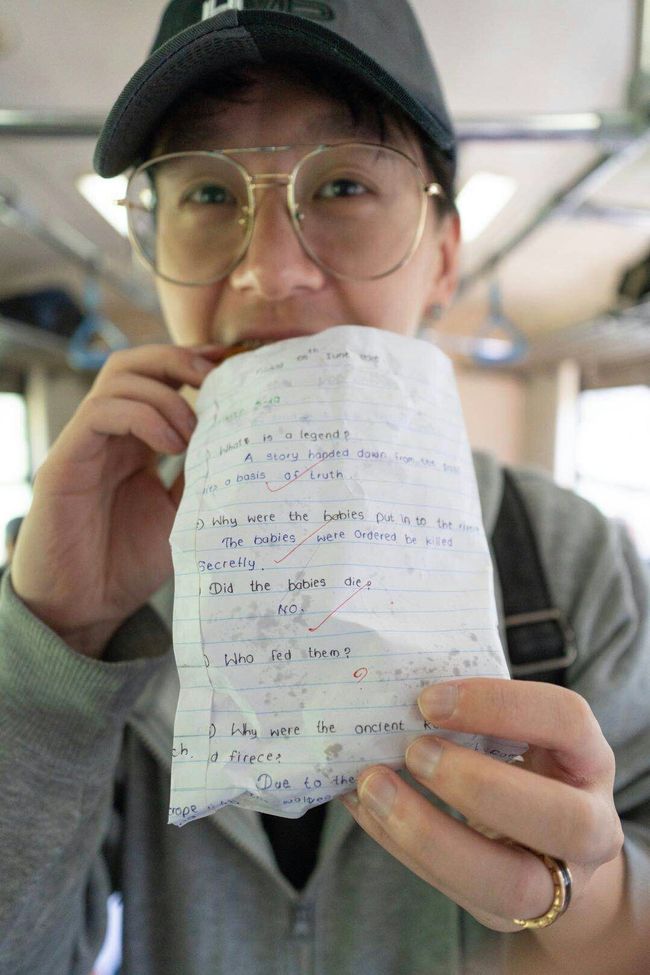 What is a legend?
A story handed down from the
a basis of truth.
Why were the babies put in to the
The babies were ordered be killed
Secretly.
Did the babies die?
NO.
Who fed them?
?
Why were the ancient
ch. d firece?
Due to the
rope wolves